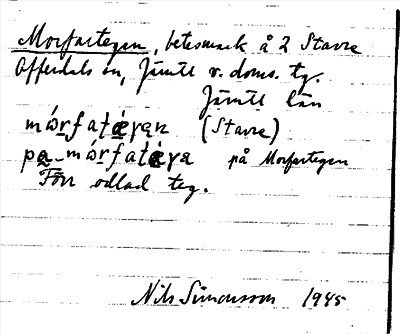 Morfartegen, betesmark å 2 Stavre
Offerdals sn, Jämtl v. doms. tg.
Jämtl län
mώrfaţǽγąn (Stavre)
pa-mώrfaţǽγa på Morfartegen
Förr odlad teg.
Nils Simonsson 1945